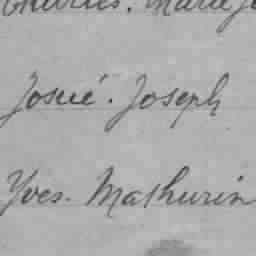 Charles. Marie J
Josué. Joseph
Yves. Mathurin